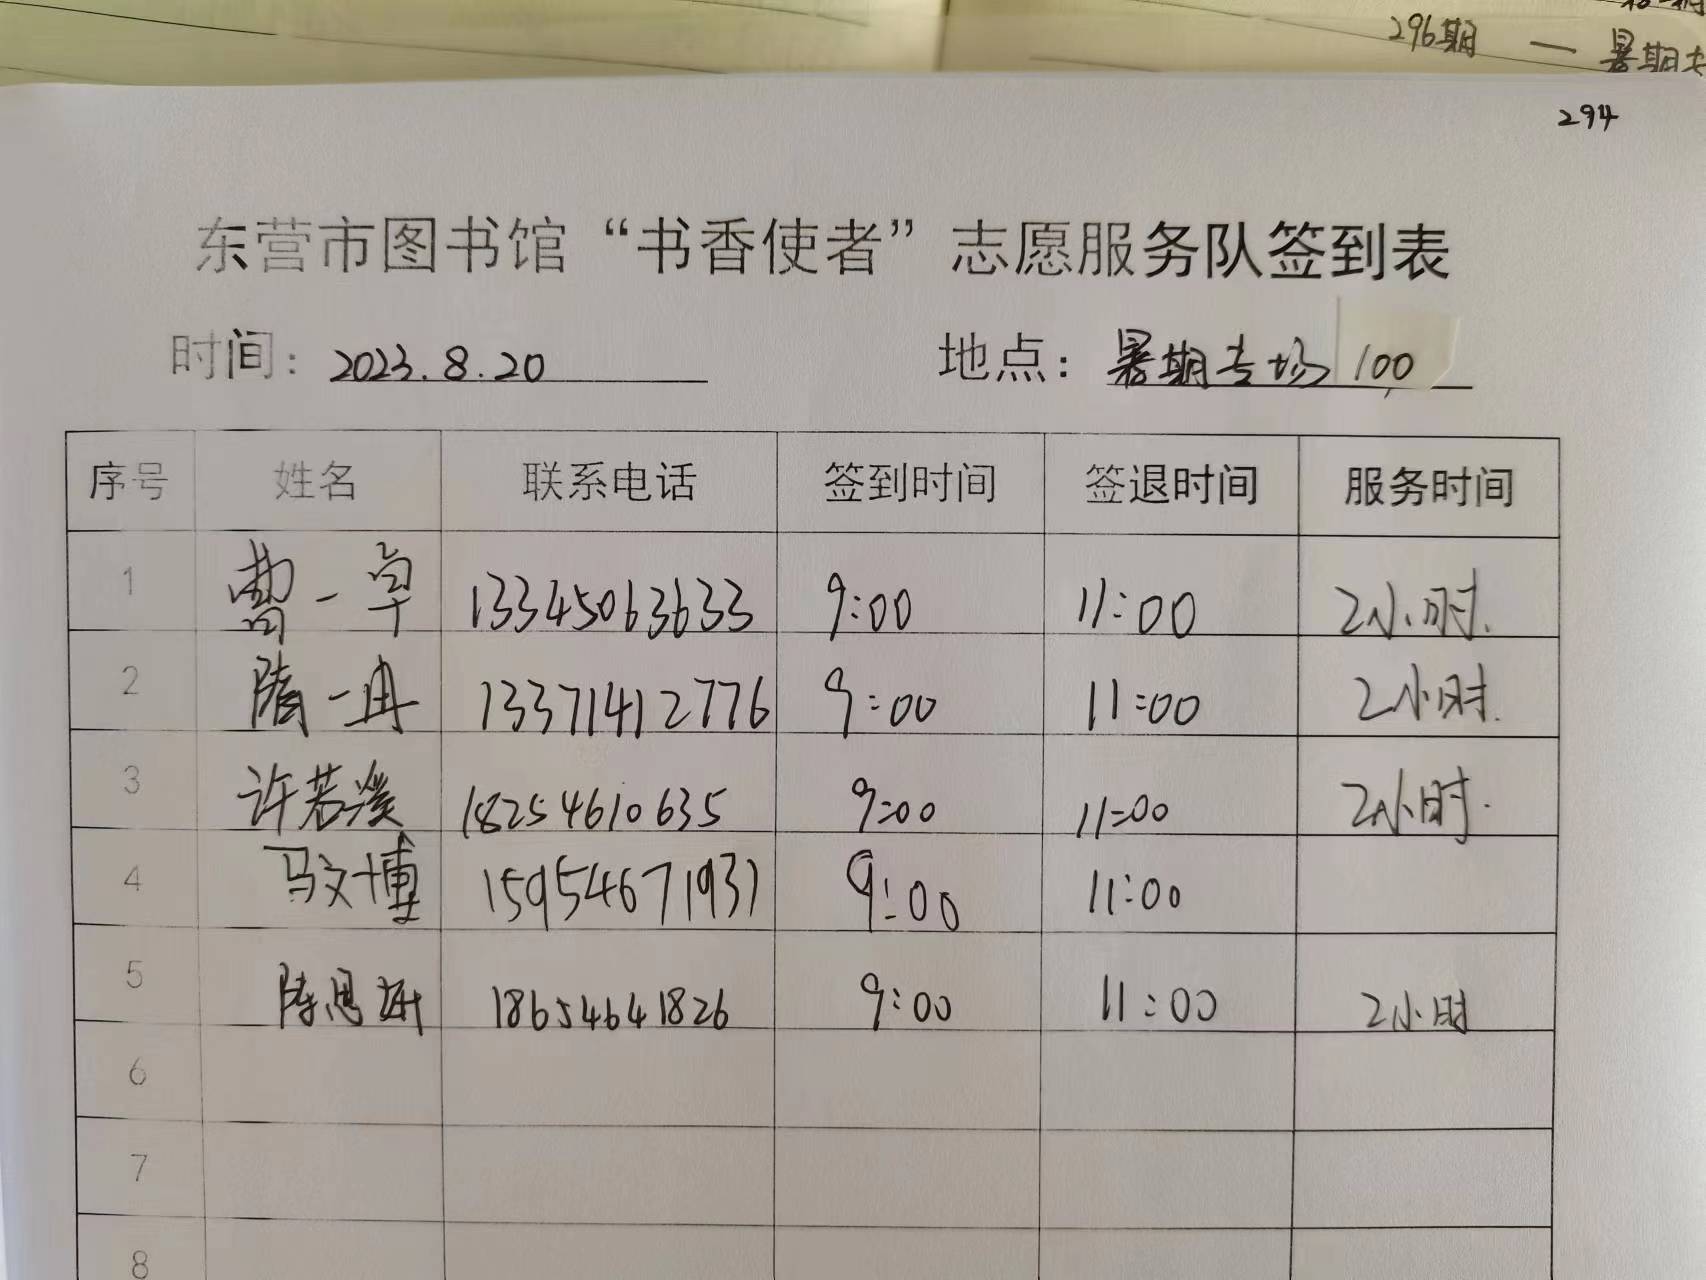 296期 一 暑期专
294
东营市图书馆“书香使者”志愿服务队签到表
时间：2023.8.20 地点：暑期专场100
序号 姓名 联系电话 签到时间 签退时间 服务时间
1 曹一卓 13345063633 9:00 11:00 2小时.
2 隋一冉 13371412776 9:00 11:00 2小时.
3 许若溪 18254610635 9:00 11:00 2小时.
4 马文博 15954671931 9:00 11:00
5 陈思妍 18654641826 9:00 11:00 2小时
6
7
8